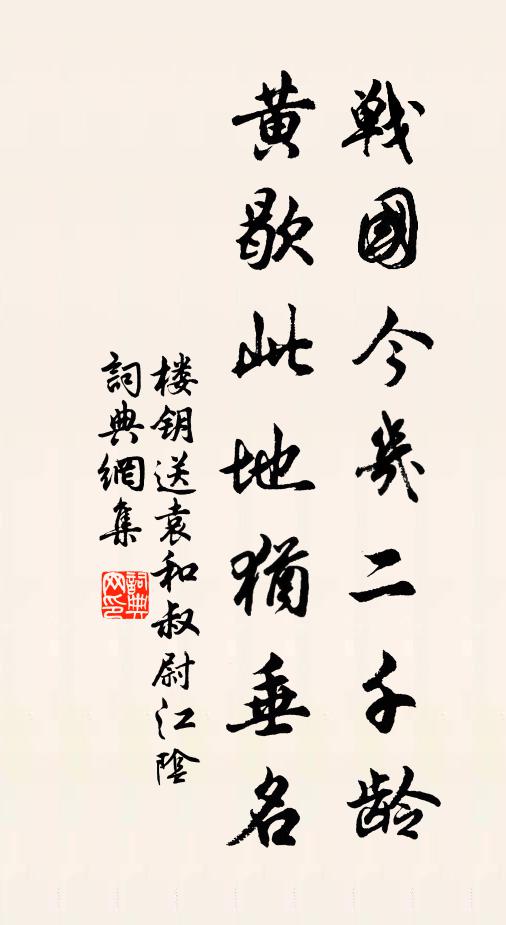 戦國今幾二千齡
黃歇此地猶垂名
楼钥送袁和叔尉江陰
詞典網集
詞典网印